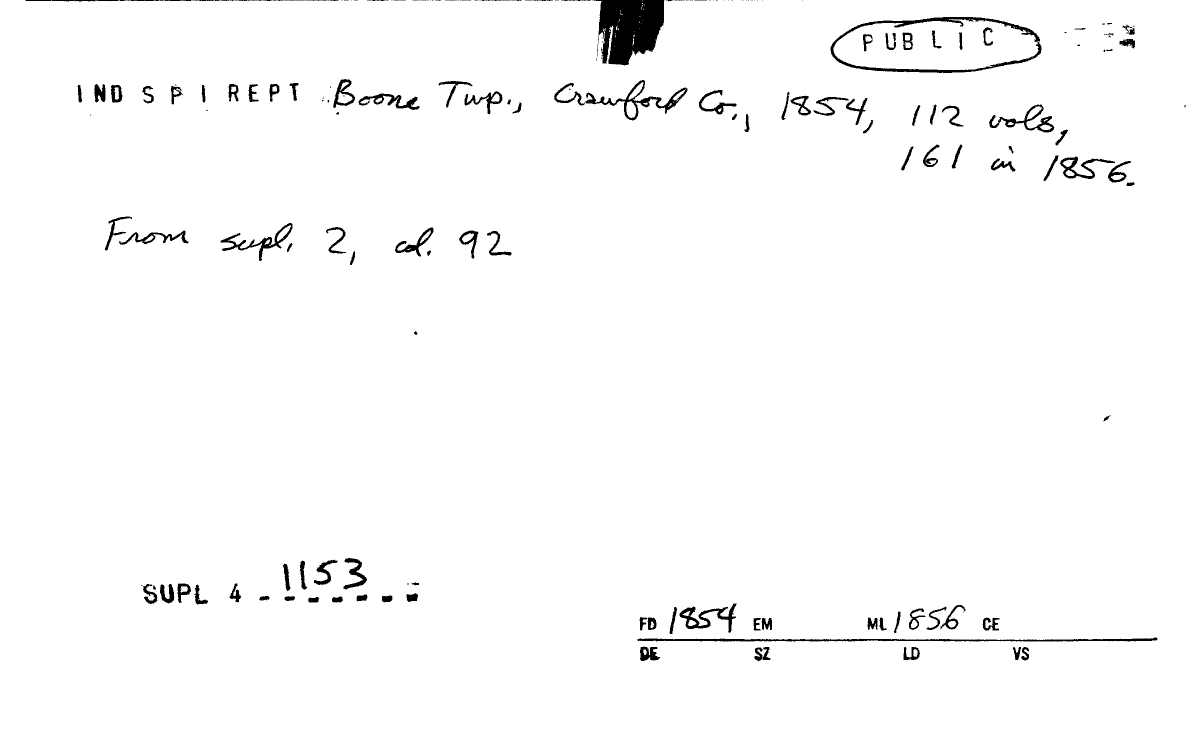 PUBLIC
INDSPIREPT Boone Twp., Crawford Co., 1854, 112 vols,
161 in 1856.
From supl. 2, col. 92
SUPL 4 1153
FD 1854 EM ML 1856 CE
DE SZ LD VS